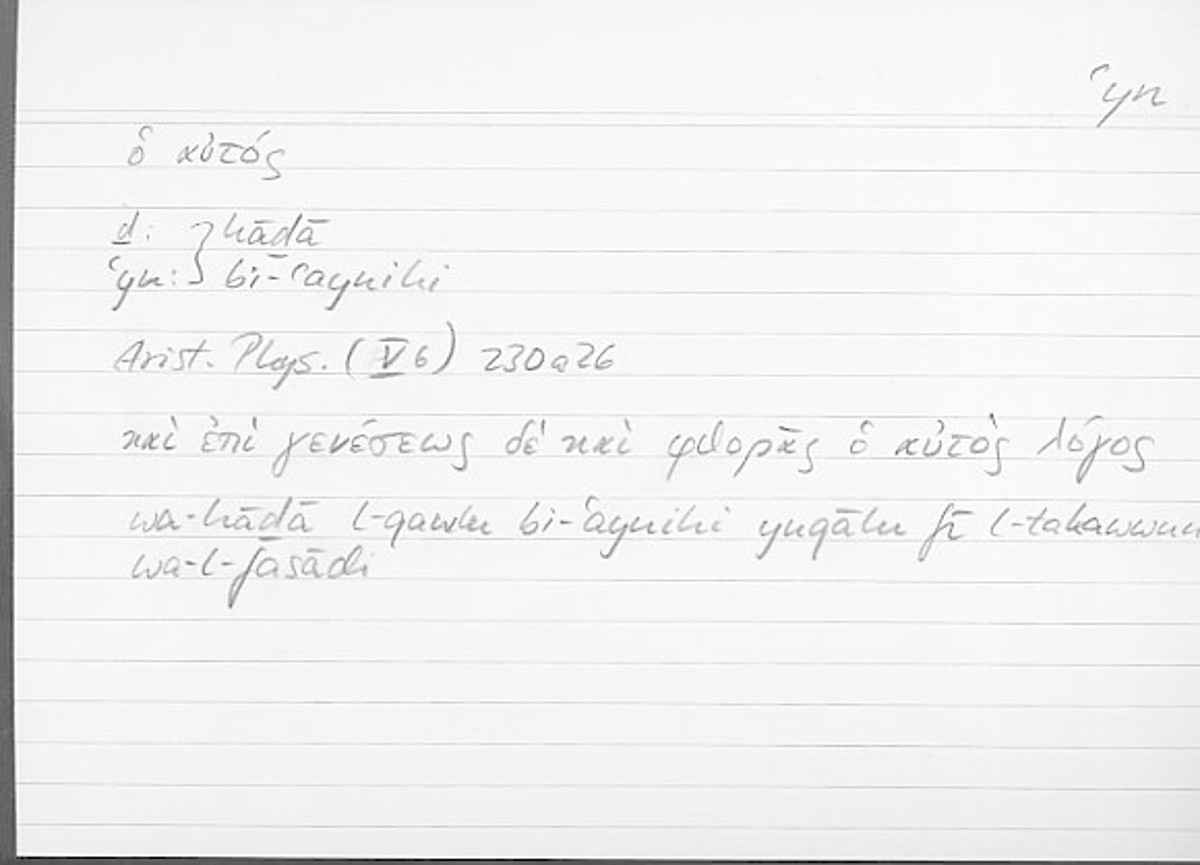 ʿyn
ὁ αὐτός
ḏ: } hāḏā
ʿyn: } bi-ʿaynihi
Arist. Phys. (V 6) 230a26
καὶ ἐπὶ γενέσεως δὲ καὶ φθορᾶς ὁ αὐτὸς λόγος
wa-hāḏā l-qawlu bi-ʿaynihi yuqālu fī l-takawwun
wa-l-fasādi